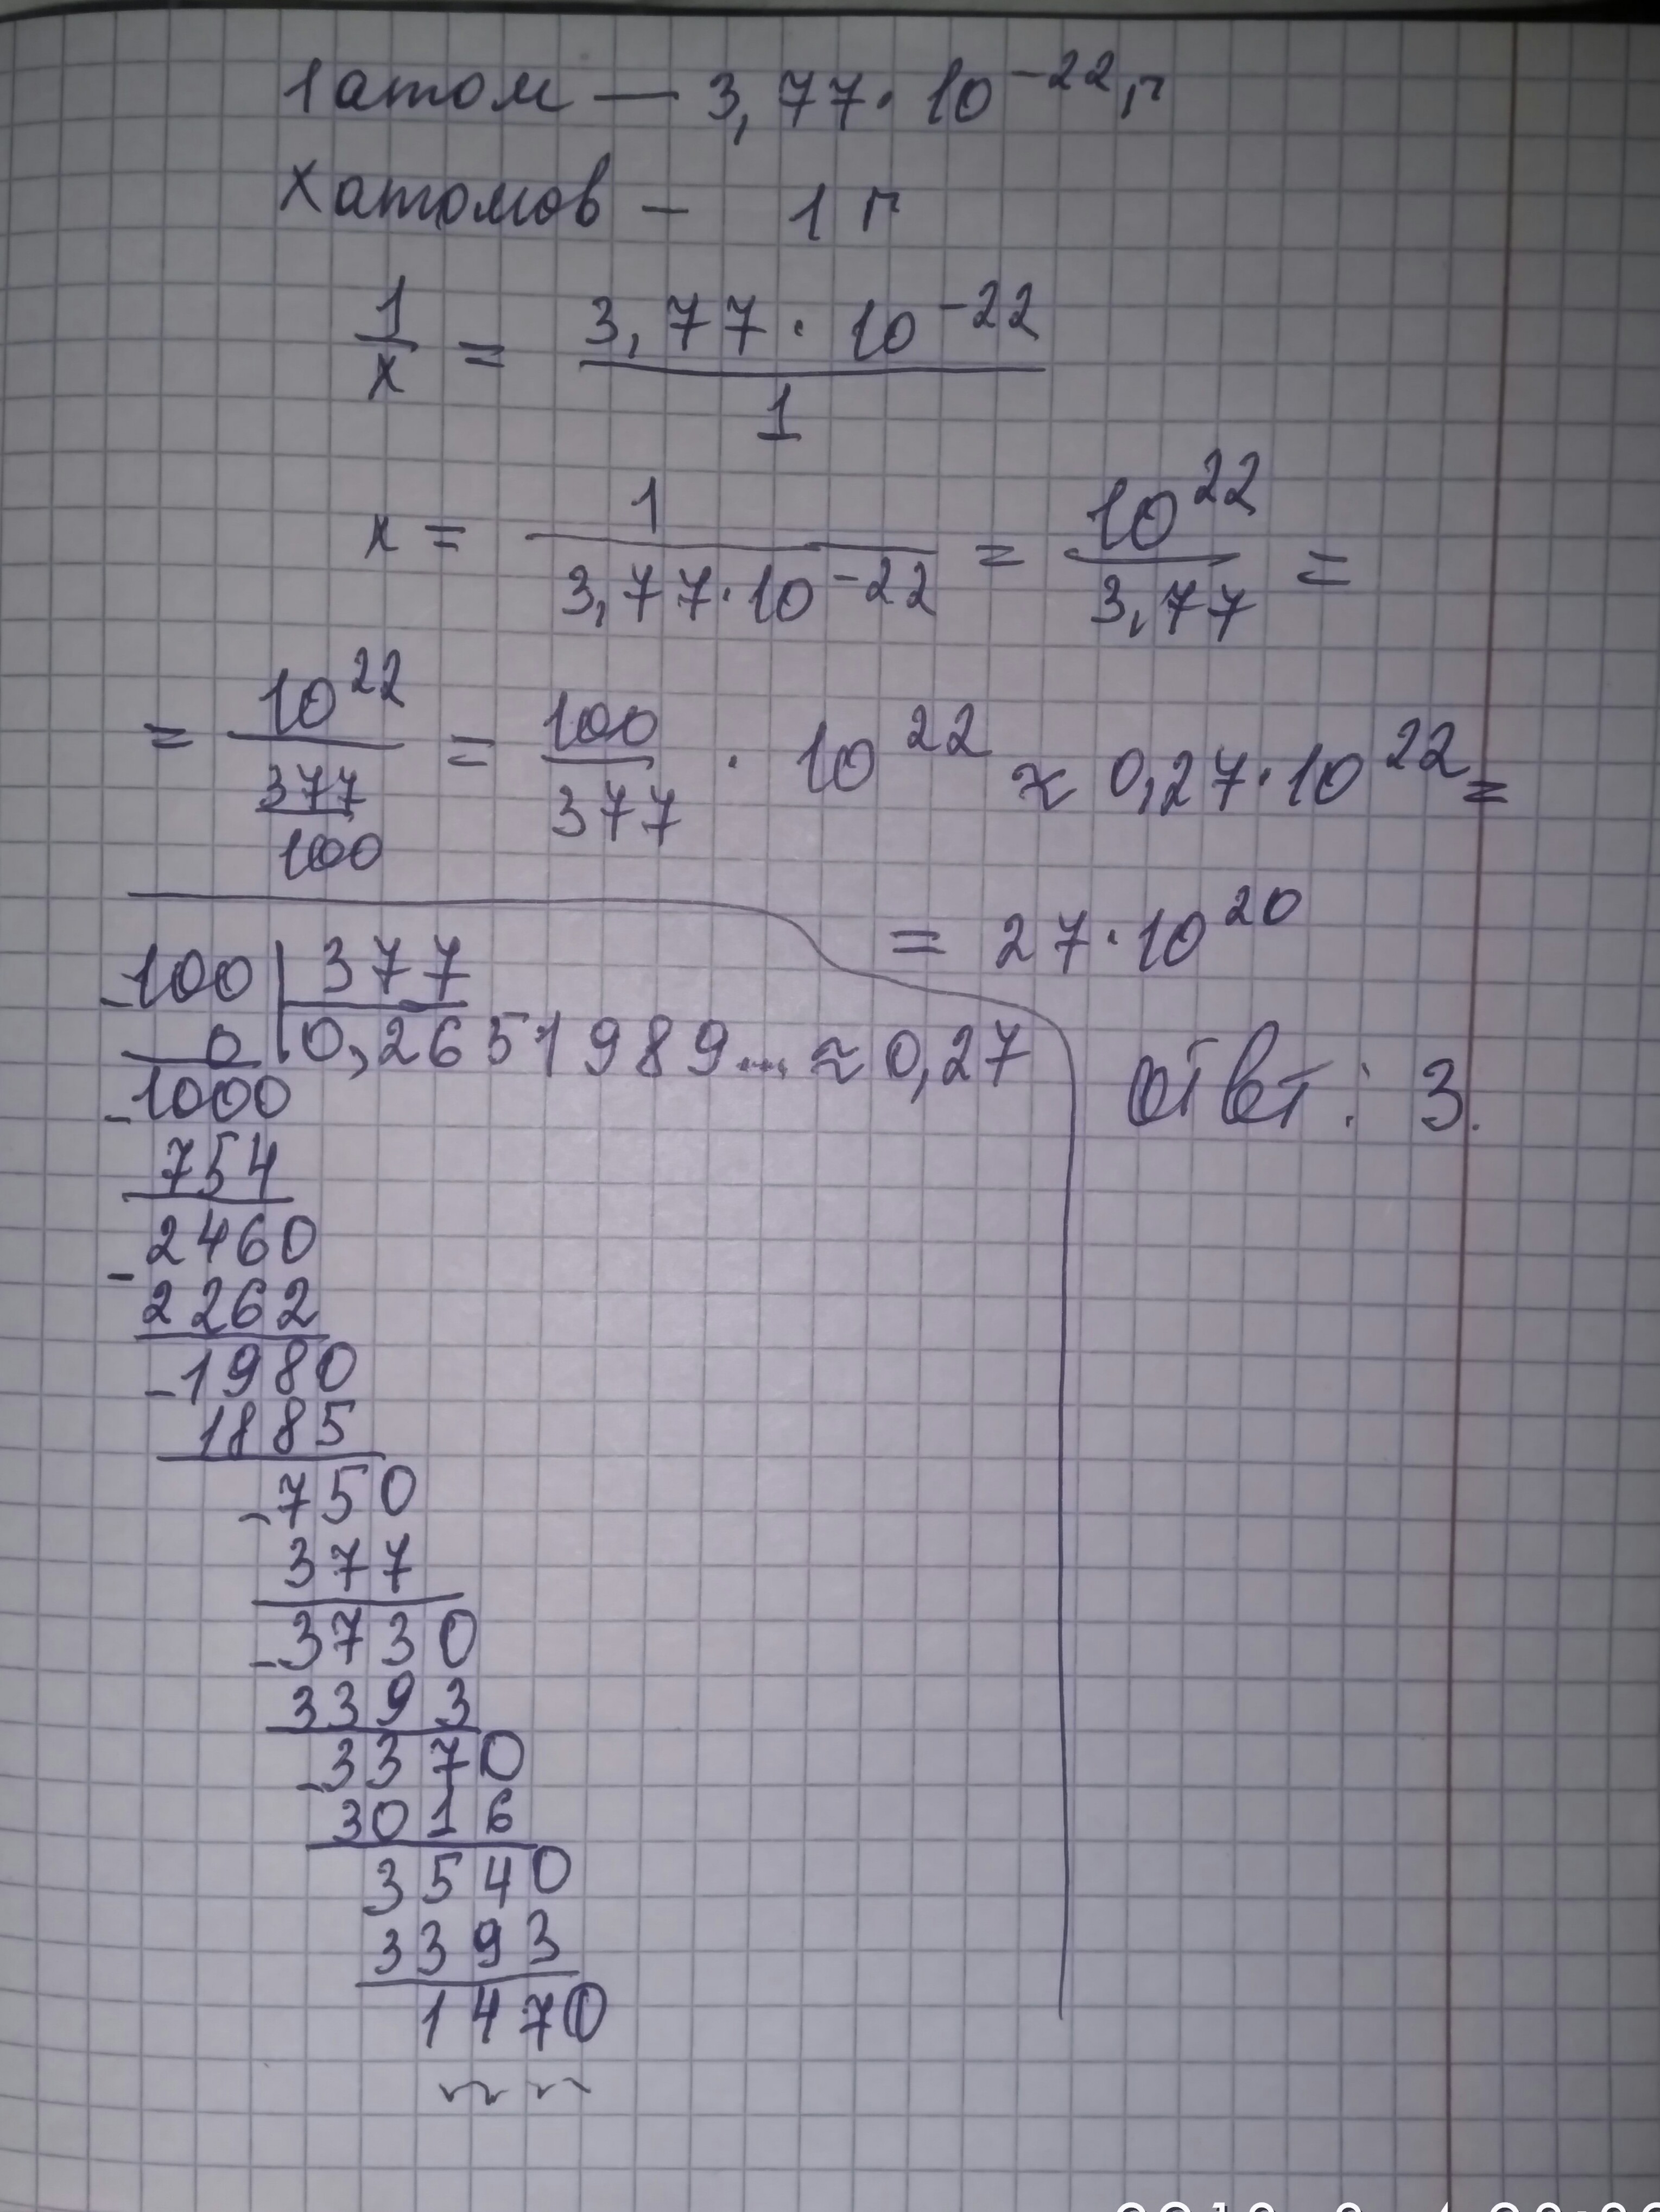 1 атом — 3,77·10⁻²², г
X атомов – 1 г
1/x = 3,77·10⁻²²/1
x = 1/3,77·10⁻²² = 10²²/3,77 =
= 10²²/377/100 = 100/377 · 10²² ≈ 0,27·10²² =
= 27·10²⁰
-100 | 377
0 | 0,2651989... ≈ 0,27
Ответ: 3.
-1000
754
-2460
2262
-1980
1885
-750
377
-3730
3393
-3370
3016
3540
3393
1470